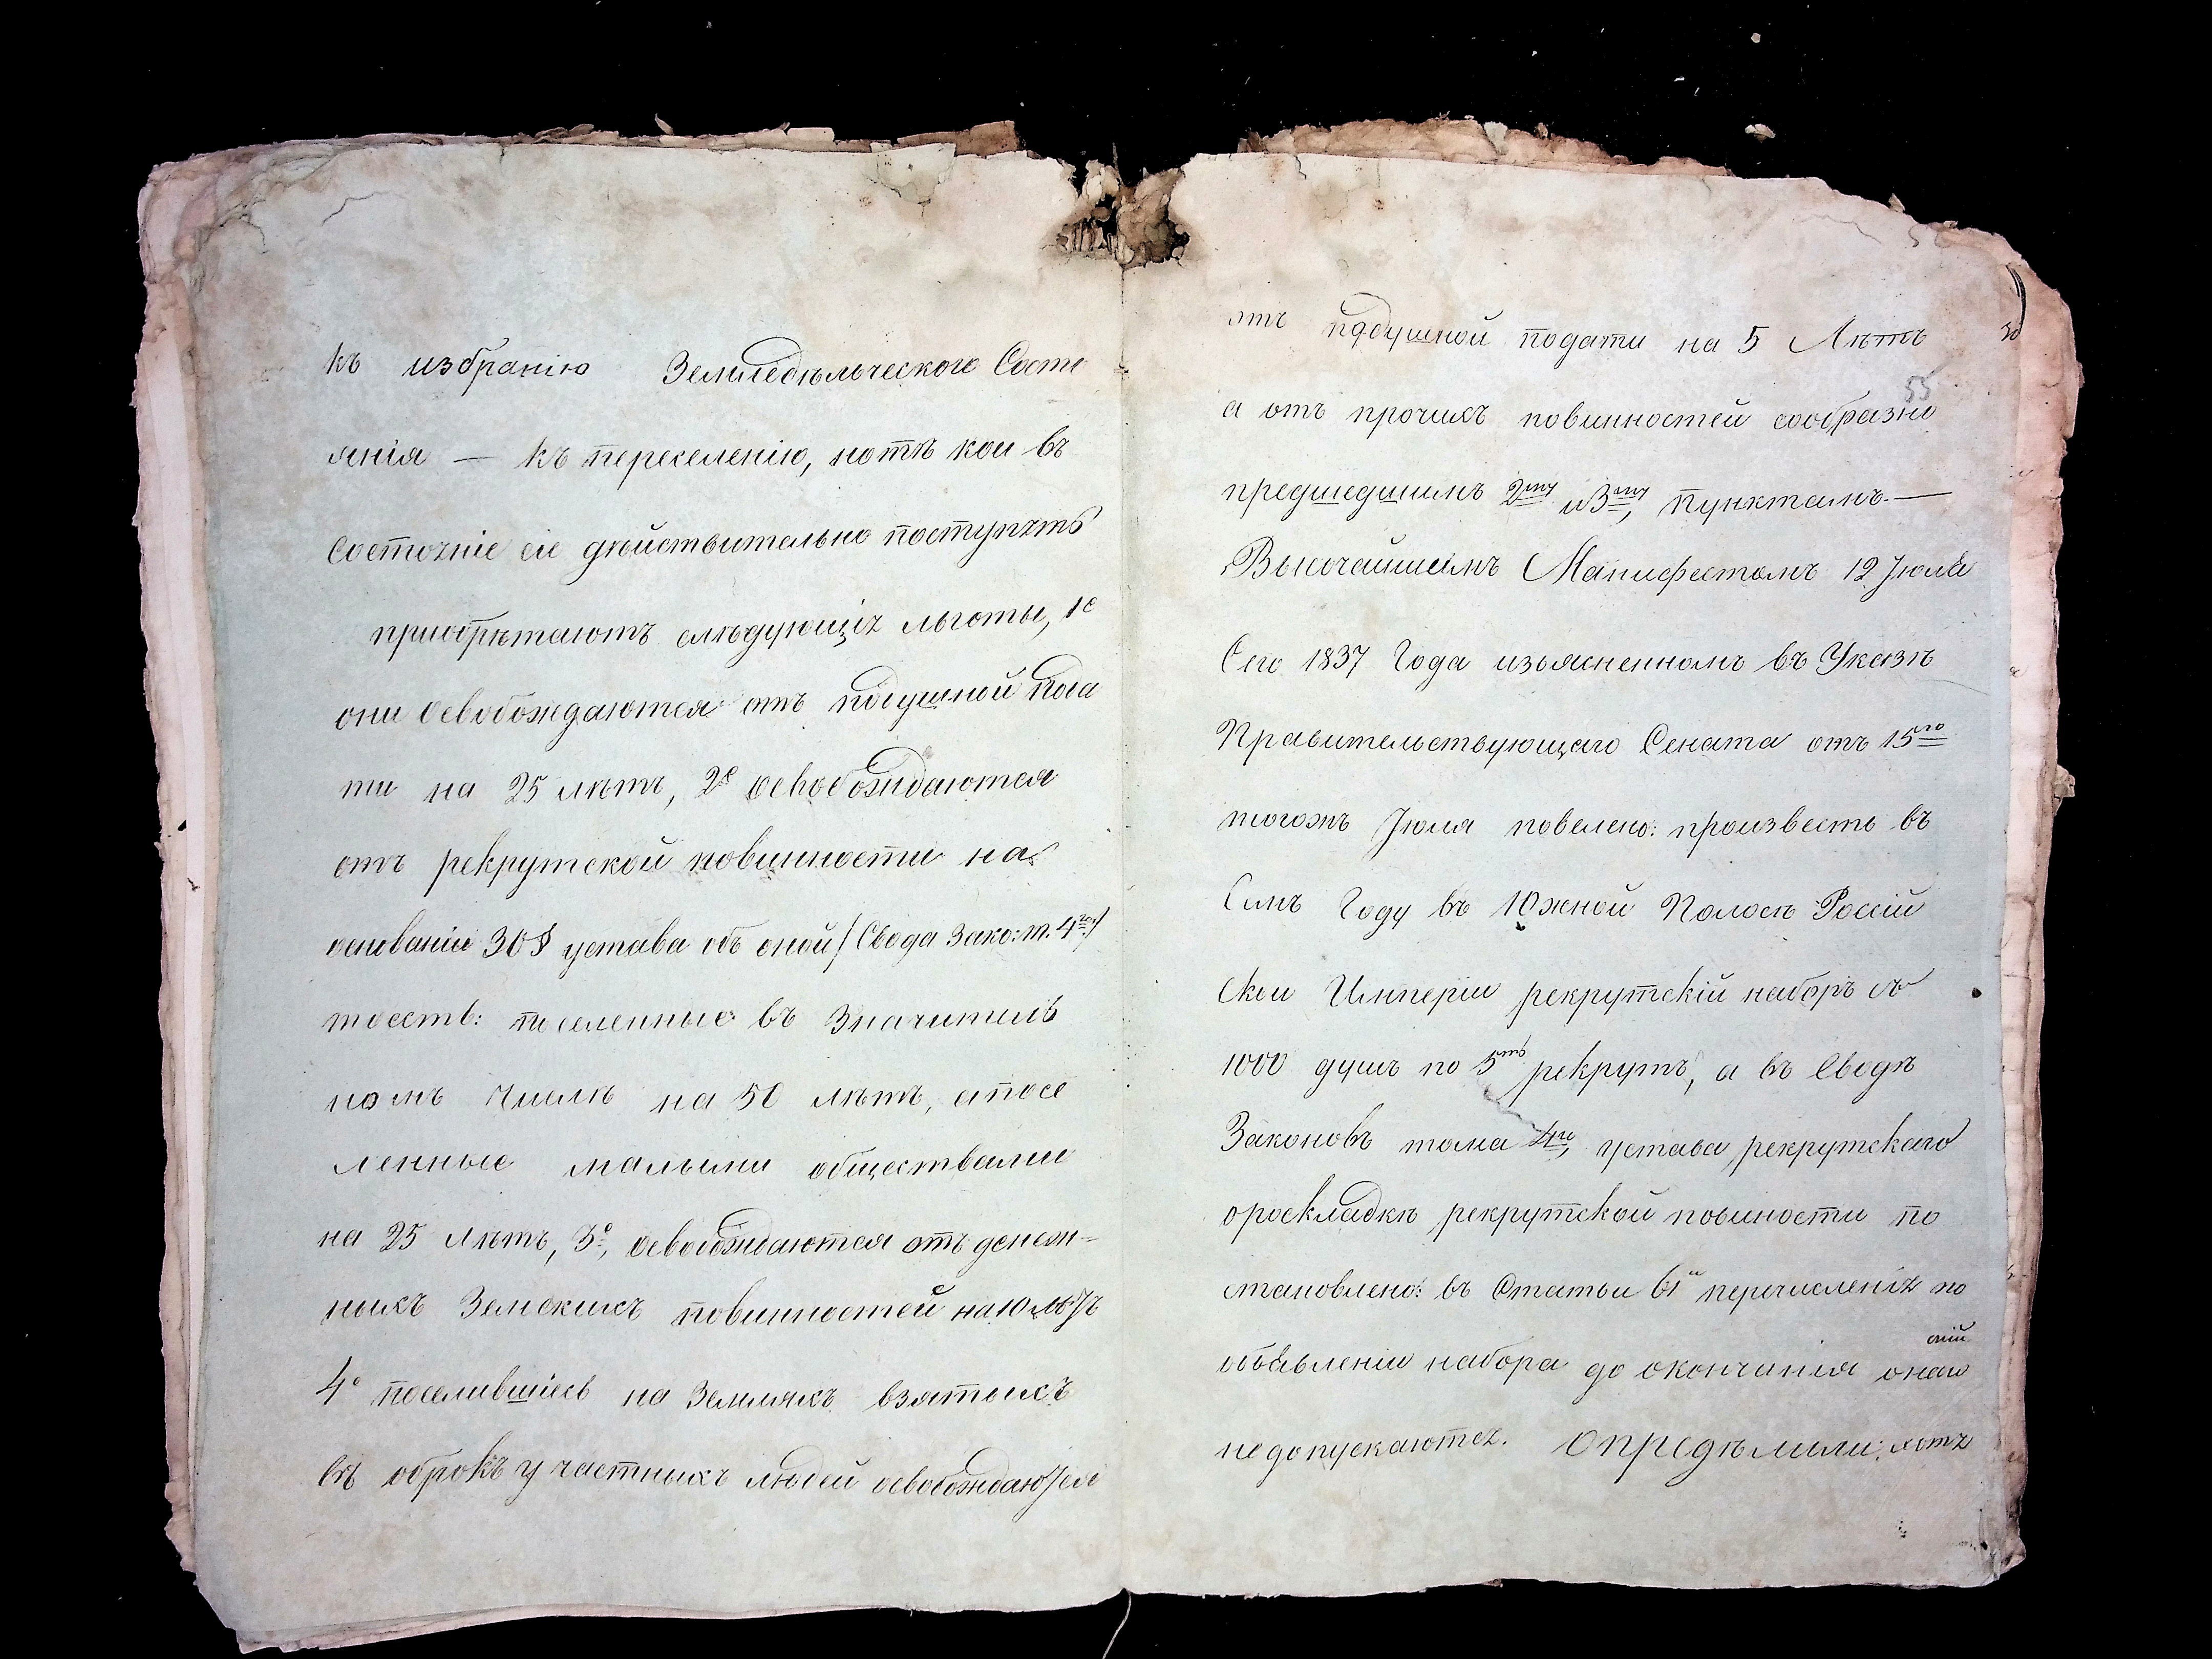 къ избранію Земледѣльческого Состо
янія — къ переселенію, но тѣ кои въ
Состояніе сіе дѣйствительно поступятъ
приобрѣтаютъ слѣдующія льготы, 1е
они освобождаются отъ подушной пода
ти на 25 лѣтъ, 2е освобождаются
отъ рекрутской повинности на
основаніи 30§ устава объ оной /Свода Зако: т. 4го/
тоесть: поселенные въ Значитель
номъ Числѣ на 50 лѣтъ, а посе
ленные малыми обществами
на 25 лѣтъ, 3е, освобождаются отъ денеж-
ныхъ Земскихъ повинностей на 10 лѣтъ
4е поселившіесь на Земляхъ взятыхъ
въ оброкъ у частныхъ людей освобождаются
отъ подушной подати на 5 Лѣтъ
55
а отъ прочихъ повинностей сообразно
предшедшимъ 2му и 3му, пунктамъ. —
Высочайшимъ Манифестомъ 12 Іюля
Сего 1837 Года изъясненномъ въ Указѣ
Правительствующаго Сената отъ 15го
тогожъ Іюля повелено: произвесть въ
Семъ Году въ Южной Полосѣ Россій
ской Имперіи рекрутскій наборъ съ
1000 душъ по 5ть рекрутъ, а въ Сводѣ
Законовъ тома 4го, устава рекрутскаго
о роскладкѣ рекрутской повиности по
становлено: въ Статьи 61й перечисленія по
объявленіи набора до окончанія онаго
недопускаются. Определили: хотя